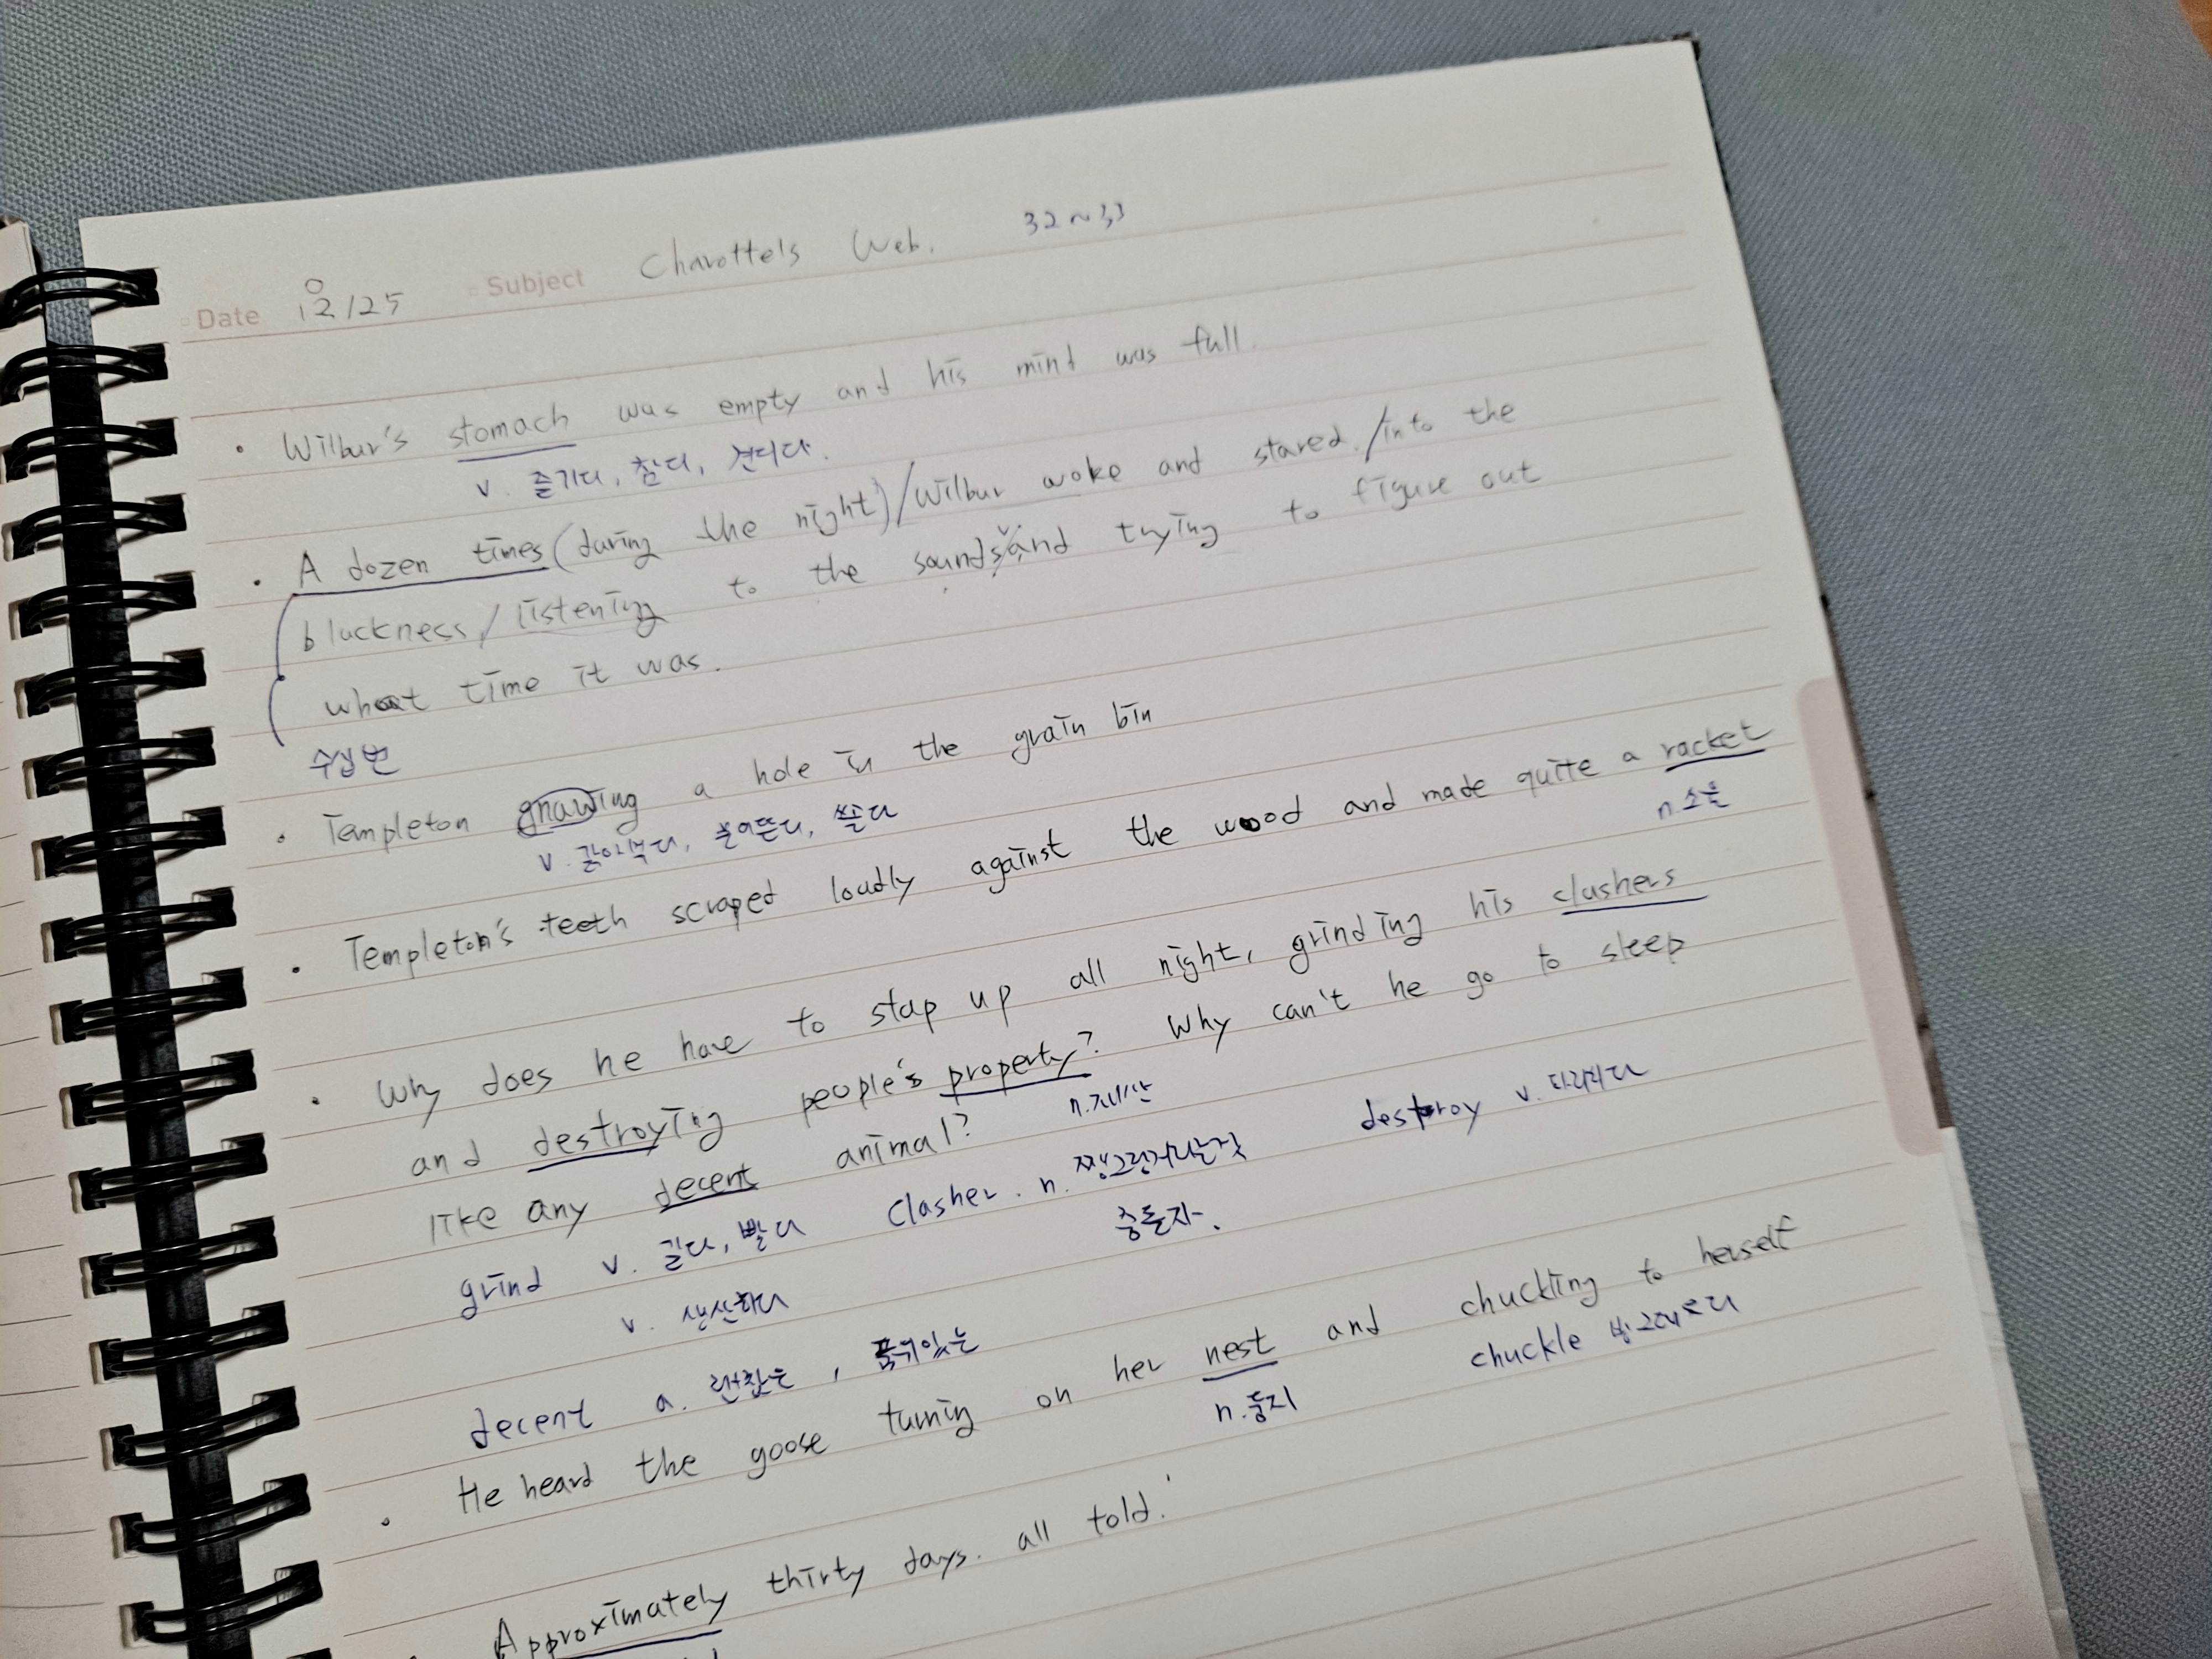 Date 12/25 Subject Charottels Web. 32~33
• Wilbur's stomach was empty and his mind was full.
v. 즐기다, 참다, 견디다.
• A dozen times (during the night) / Wilbur woke and stared / into the
bluckness / listening to the sounds and trying to figure out
what time it was.
수십 번
• Templeton gnawing a hole in the grain bin
v. 갉아먹다, 물어뜯다, 쏠다
• Templeton's teeth scraped loudly against the wood and made quite a racket
n. 소음
• Why does he have to stap up all night, grinding his clashers
and destroying people's property? Why can't he go to sleep
n. 재산
like any decent animal?
destroy v. 파괴하다
grind v. 갈다, 빻다 clasher. n. 쨍그렁거리는것
충돌자.
v. 생산하다
decent a. 괜찮은, 품위있는
• He heard the goose turning on her nest and chuckling to herself
n. 둥지 chuckle 빙그레웃다
• Approximately thirty days. all told.'